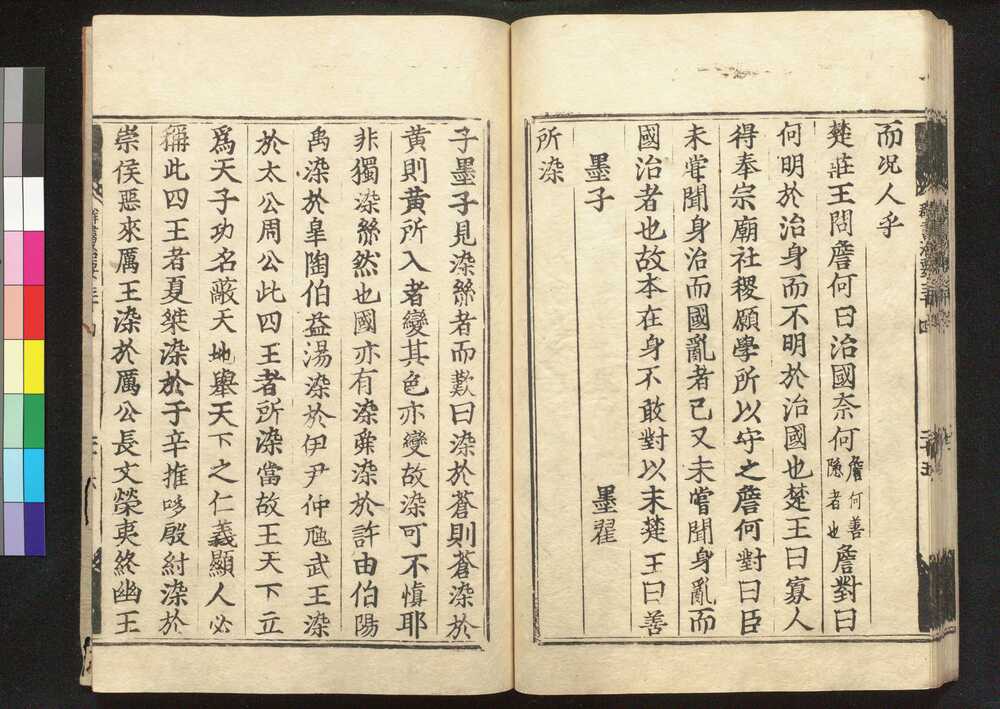 而况人乎
楚莊王問詹何曰治國奈何詹何善隱者也詹對曰
何明於治身而不明於治國也楚王曰寡人
得奉宗廟社稷願學所以守之詹何對曰臣
未甞聞身治而國亂者己又未嘗聞身亂而
國治者也故本在身不敢對以末楚王曰善
墨子 墨翟
所染
子墨子見染絲者而歎曰染於蒼則蒼染於
黄則黄所入者變其色亦變故染可不慎耶
非獨染絲然也國亦有染舜染於許由伯陽
禹染於皐陶伯益湯染於伊尹仲虺武王染
於太公周公此四王者所染當故王天下立
爲天子功名蔽天地舉天下之仁義顯人必
稱此四王者夏桀染於于辛推哆殷紂染於
崇侯惡來厲王染於厲公長文榮夷終幽王
群書治要三十四
三十五